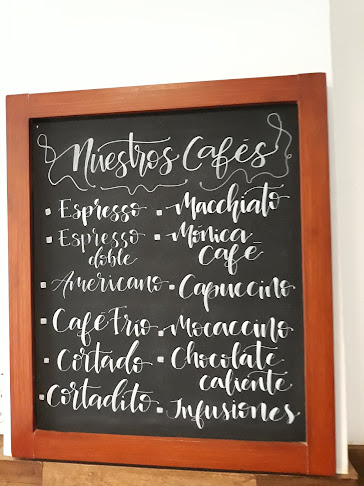 Nuestros Cafés
Espresso
Espresso
doble
Americano
Café Frio
Cortado
Cortadito
Macchiato
Mónica
café
Capuccino
Mocaccino
Chocolate
caliente
Infusiones